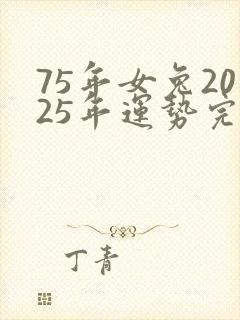 75年女兔20
25年運势完
丁青